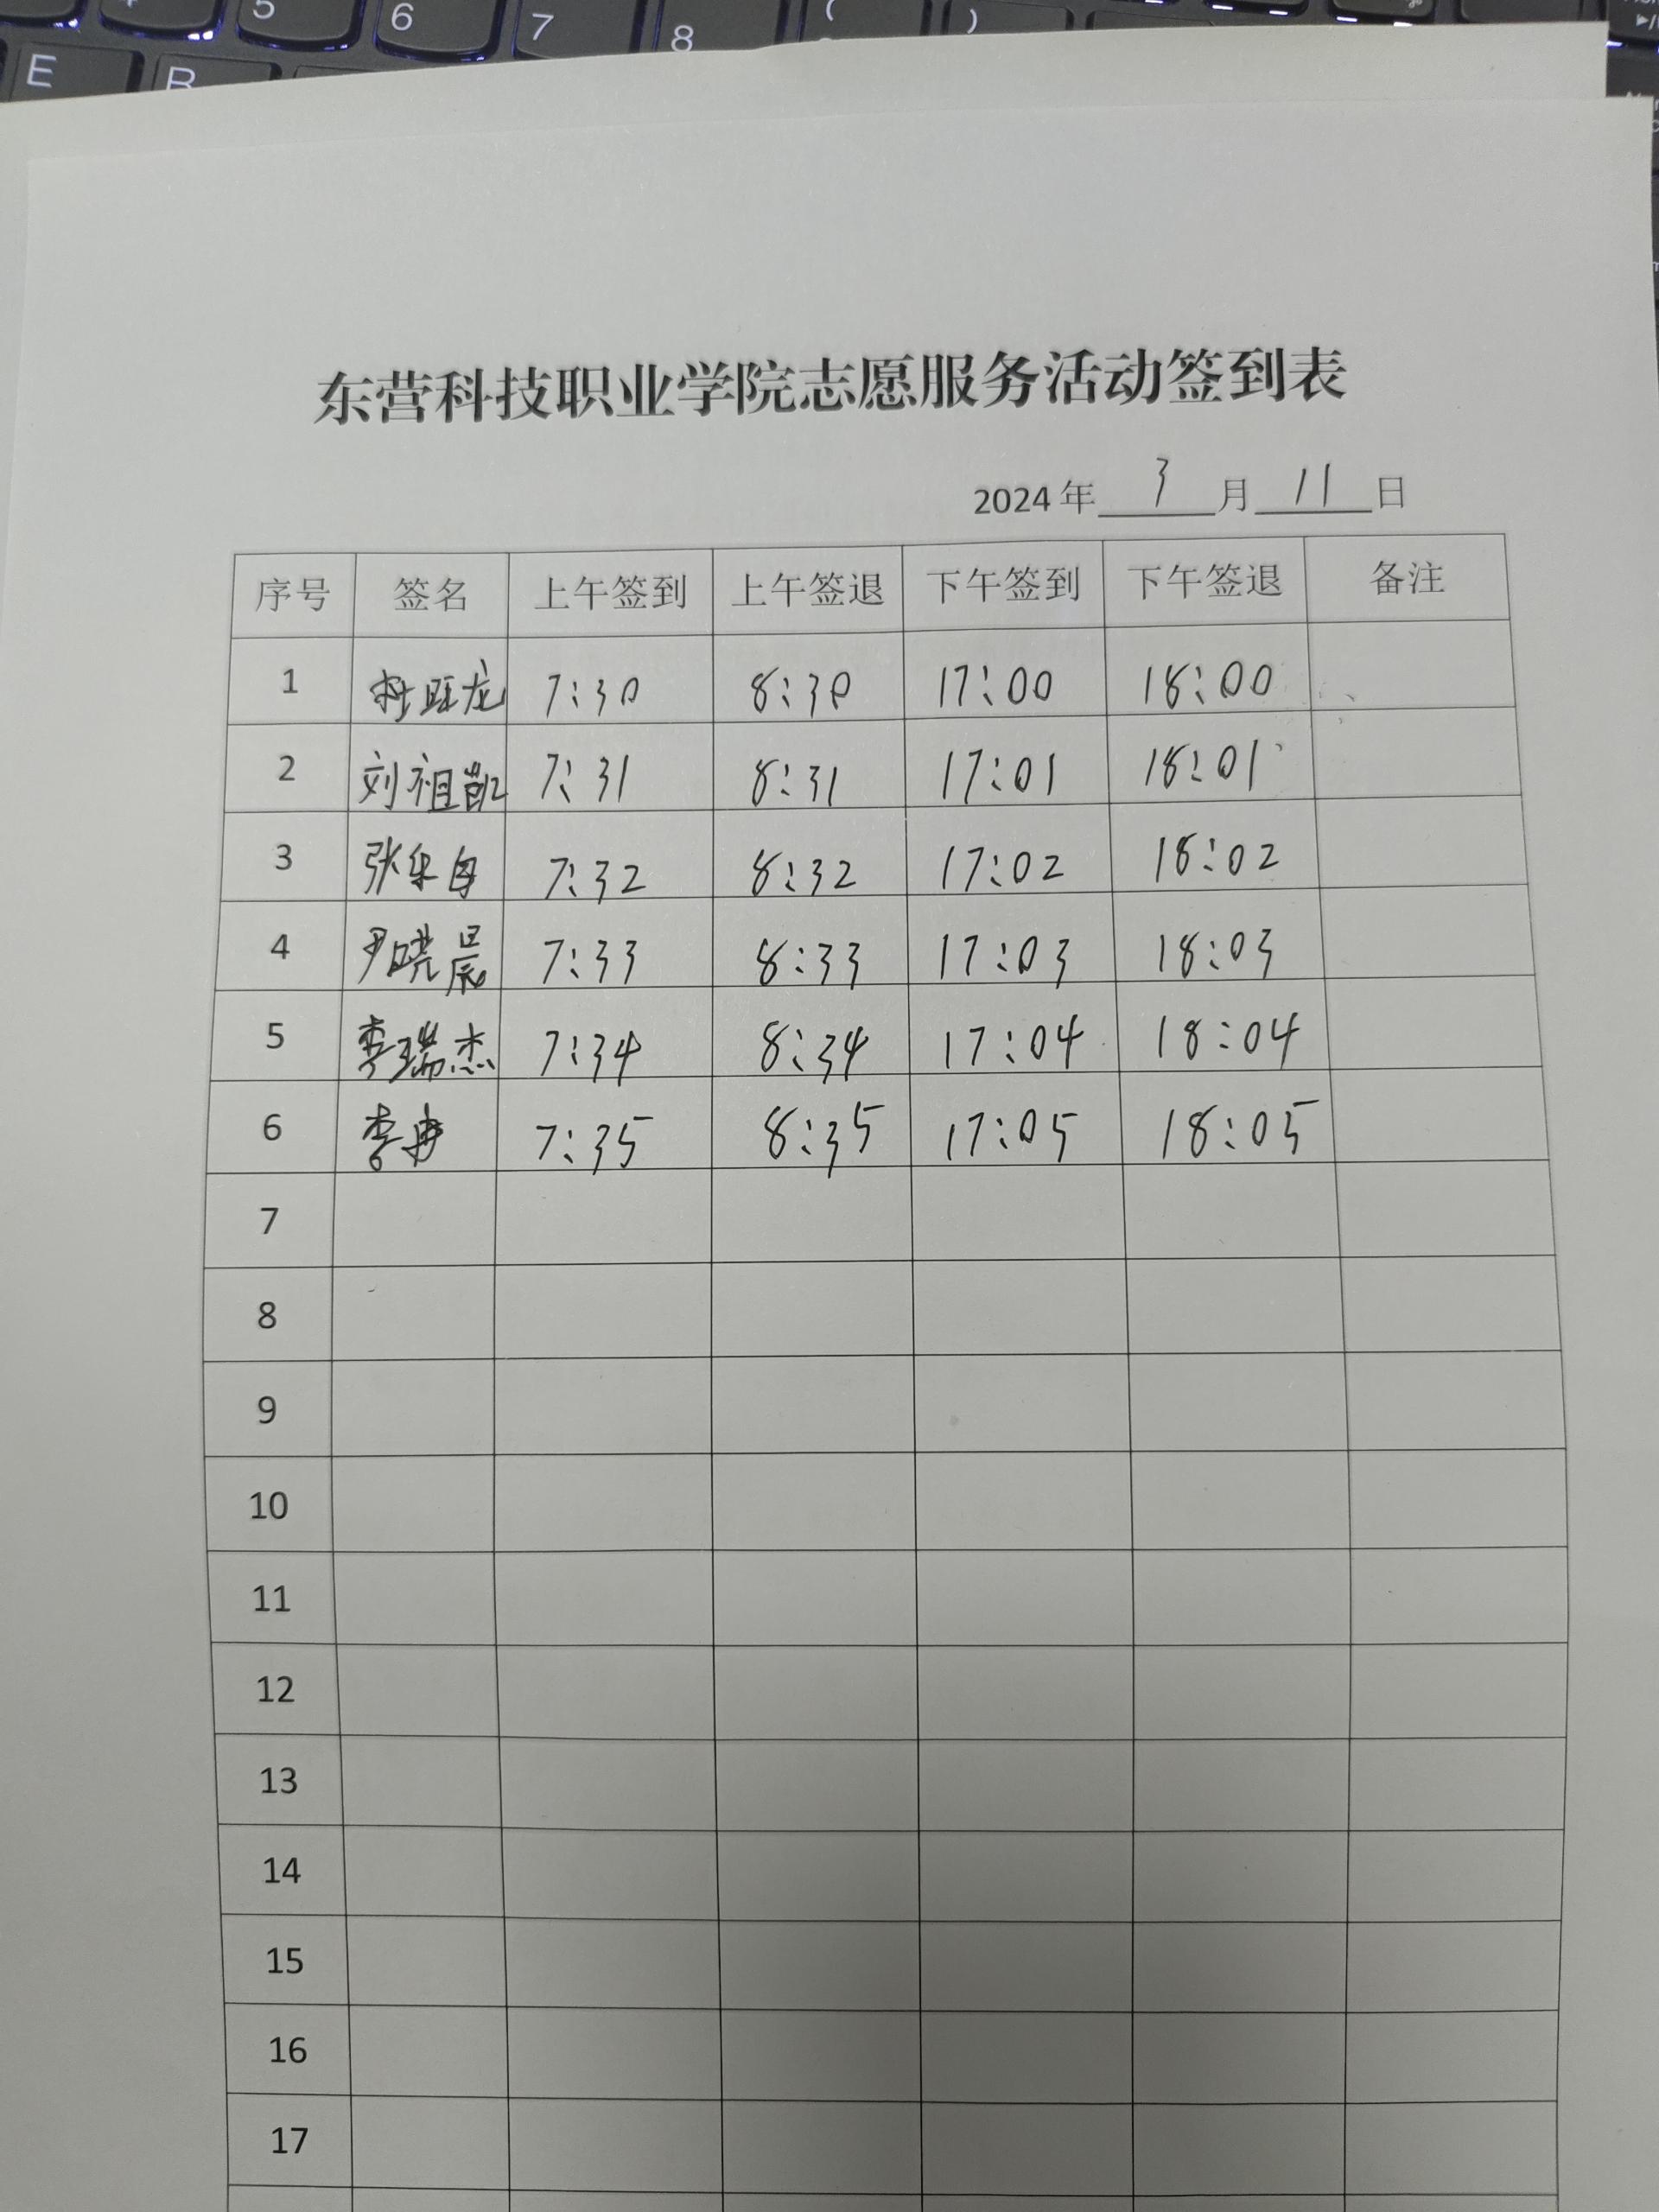 5 6 7 8 ( )
E R
东营科技职业学院志愿服务活动签到表
2024 年 3 月 11 日
序号 签名 上午签到 上午签退 下午签到 下午签退 备注
1 杜旺龙 7:30 8:30 17:00 18:00
2 刘祖凯 7:31 8:31 17:01 18:01
3 张 7:32 8:32 17:02 18:02
4 尹晓晨 7:33 8:33 17:03 18:03
5 李瑞杰 7:34 8:34 17:04 18:04
6 李冉 7:35 8:35 17:05 18:05
7
8
9
10
11
12
13
14
15
16
17